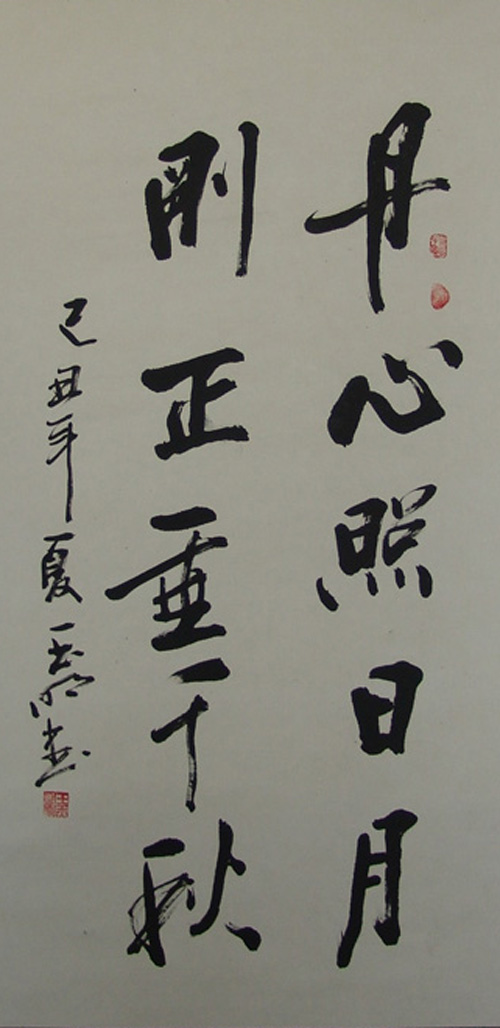 丹心照日月
刚正垂千秋
己丑年夏玉亮书